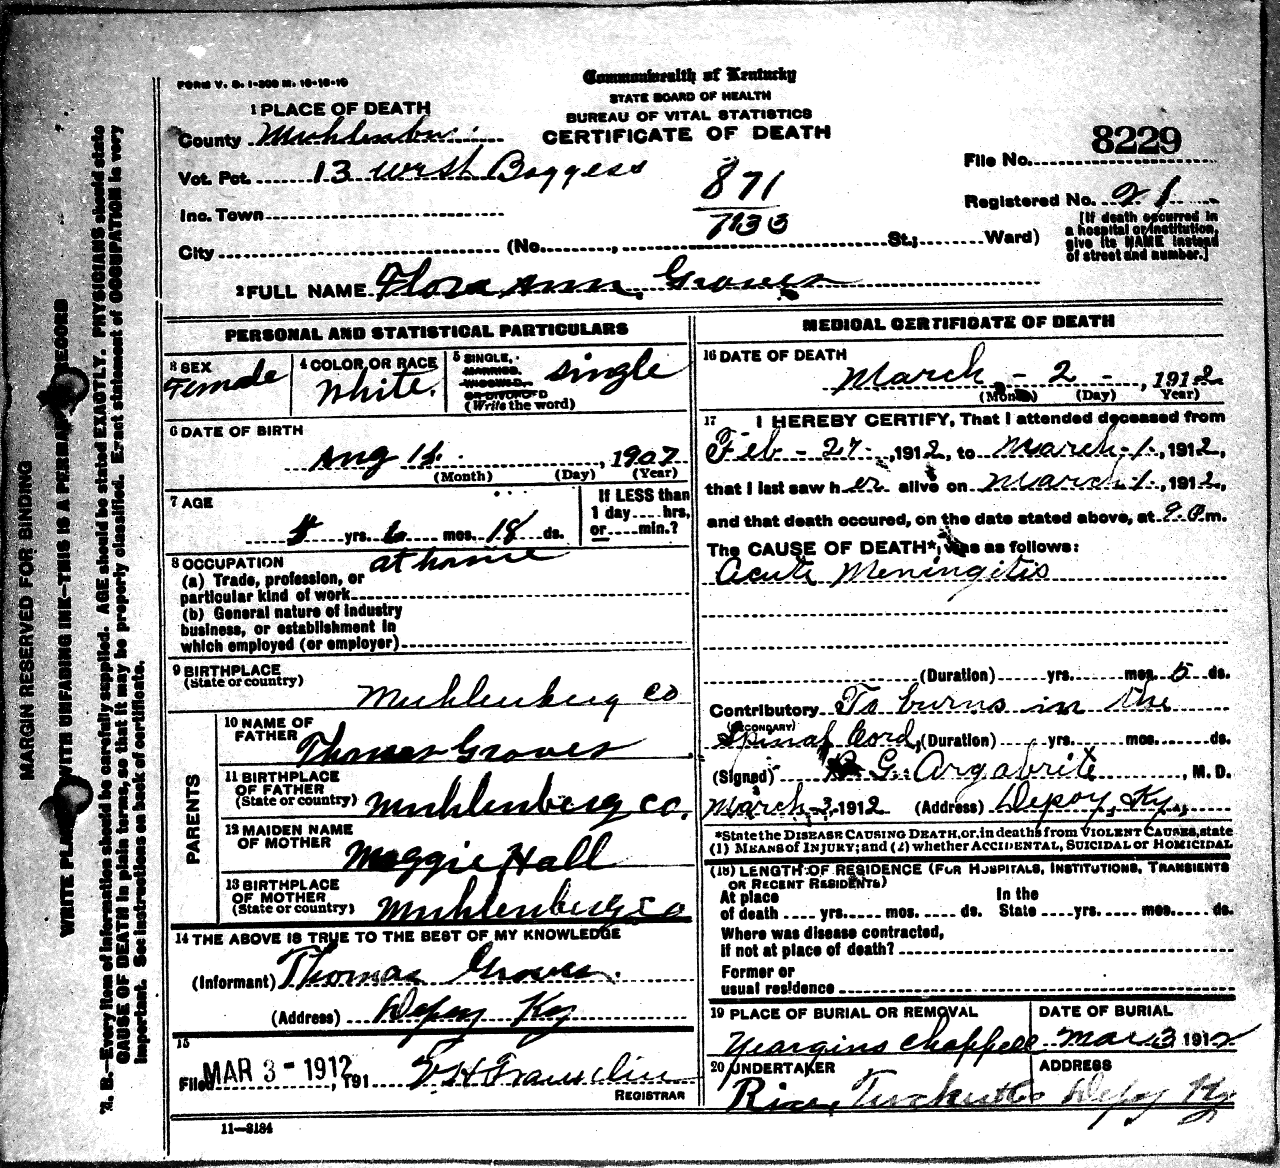 FORM V. S. 1-300 M. 10-18-10
Commonwealth of Kentucky
STATE BOARD OF HEALTH
BUREAU OF VITAL STATISTICS
CERTIFICATE OF DEATH
1 PLACE OF DEATH
County
Vot. Pct. 13 West Boggess
Inc. Town
City (No. , St.; Ward)
871
7233
File No. 8229
Registered No. 21
[If death occurred in
a hospital or institution,
give its NAME instead
of street and number.]
2 FULL NAME Flora Ann Groves
PERSONAL AND STATISTICAL PARTICULARS
3 SEX
Female
4 COLOR OR RACE
White.
5 SINGLE,
MARRIED,
WIDOWED,
OR DIVORCED
(Write the word)
single
6 DATE OF BIRTH
Aug , 1907
(Month) (Day) (Year)
7 AGE
4 yrs. 6 mos. 18 ds.
If LESS than
1 day....hrs,
or....min.?
8 OCCUPATION at home
(a) Trade, profession, or
particular kind of work
(b) General nature of industry
business, or establishment in
which employed (or employer)
9 BIRTHPLACE
(State or country)
Muhlenberg co
PARENTS
10 NAME OF
FATHER
Thomas Groves
11 BIRTHPLACE
OF FATHER
(State or country)
Muhlenberg co.
12 MAIDEN NAME
OF MOTHER
Maggie Hall
13 BIRTHPLACE
OF MOTHER
(State or country)
Muhlenberg co
14 THE ABOVE IS TRUE TO THE BEST OF MY KNOWLEDGE
(Informant) Thomas Groves.
(Address) Depoy Ky
15
Filed MAR 3 - 1912, 191
REGISTRAR
11-3184
MEDICAL CERTIFICATE OF DEATH
16 DATE OF DEATH
March - 2 - , 1912
(Month) (Day) (Year)
17 I HEREBY CERTIFY, That I attended deceased from
Feb - 27 , 1912, to March - 1 , 1912,
that I last saw her alive on March 1 , 1912,
and that death occured, on the date stated above, at 9 m.
The CAUSE OF DEATH*, was as follows:
Acute Meningitis
(Duration) yrs. mos. 5 ds.
Contributory To burns in the
(SECONDARY)
Spinal Cord, (Duration) yrs. mos. ds.
(Signed) G. Argabrite, M. D.
March 2, 1912 (Address) Depoy, Ky.,
*State the DISEASE CAUSING DEATH, or, in deaths from VIOLENT CAUSES, state
(1) MEANS of INJURY; and (2) whether ACCIDENTAL, SUICIDAL or HOMICIDAL
(18) LENGTH OF RESIDENCE (FOR HOSPITALS, INSTITUTIONS, TRANSIENTS
OR RECENT RESIDENTS)
At place
of death .... yrs. .... mos. .... ds.
In the
State ....yrs. ....mos. ....ds.
Where was disease contracted,
if not at place of death?
Former or
usual residence
19 PLACE OF BURIAL OR REMOVAL
Yeargins Chappell
DATE OF BURIAL
Mar 3 1912
20 UNDERTAKER
Rice,
ADDRESS
Depoy Ky
MARGIN RESERVED FOR BINDING
WRITE PLAINLY WITH UNFADING INK—THIS IS A PERMANENT RECORD
N. B.—Every item of information should be carefully supplied. AGE should be stated EXACTLY. PHYSICIANS should state
CAUSE OF DEATH in plain terms, so that it may be properly classified. Exact statement of OCCUPATION is very
important. See instructions on back of certificate.